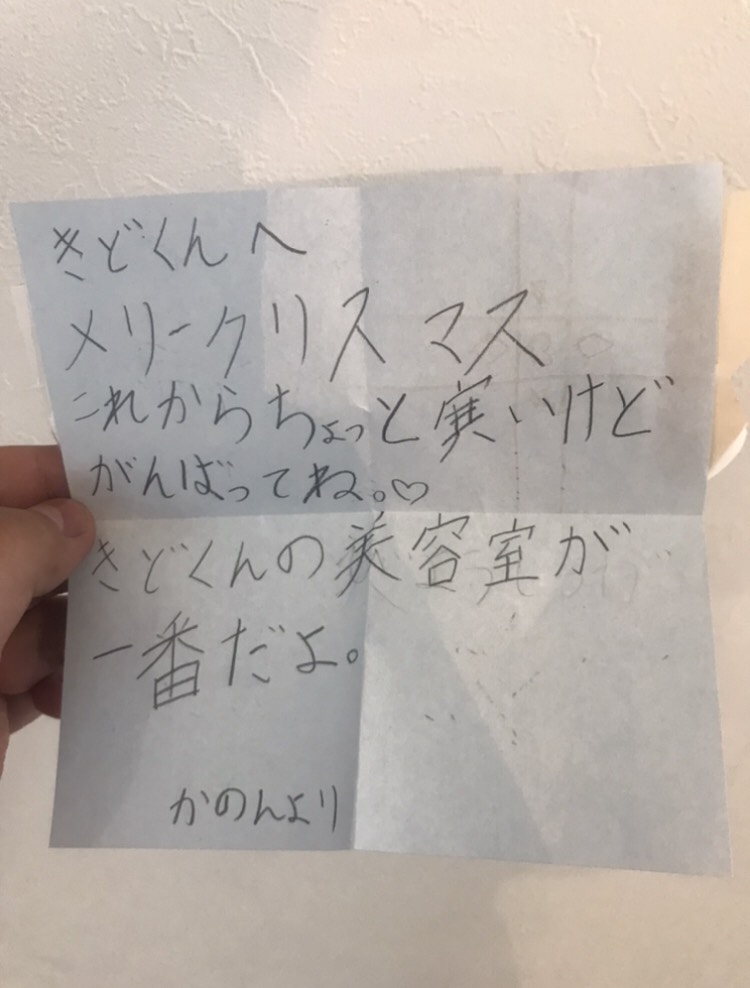 きどくんへ
メリークリスマス
これからちょっと寒いけど
がんばってね。♡
きどくんの美容室が
一番だよ。
かのんより